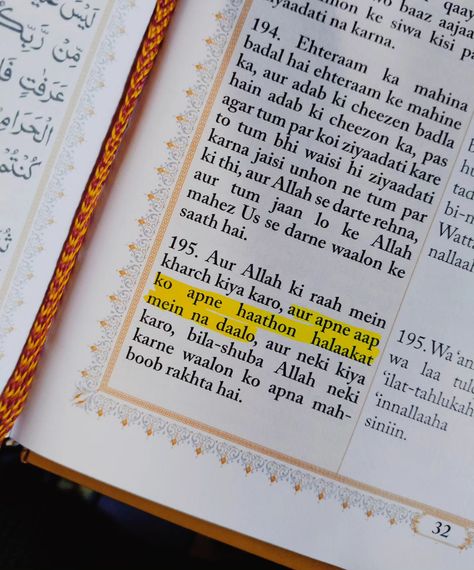 لَيْسَ
مِّن رَّبِّكُ
عَرَفَٰتٍ فَ
الْحَرَامِ
كُنتُم
baaz aajaa
ke siwa kisi pa
ziyaadati na karna.
194. Ehteraam ka mahina
badal hai ehteraam ke mahine
ka, aur adab ki cheezen badla
hain adab ki cheezon ka, pas
agar tum par koi ziyaadati kare
to tum bhi waisi hi ziyaadati
karna jaisi unhon ne tum par
ki thi, aur Allah se darte rehna,
aur tum jaan lo ke Allah
mahez Us se darne waalon ke
saath hai.
195. Aur Allah ki raah mein
kharch kiya karo, aur apne aap
ko apne haathon halaakat
mein na daalo, aur neki kiya
karo, bila-shuba Allah neki
karne waalon ko apna mah-
boob rakhta hai.
bi-
Watt
nallaah
195. Wa‘an
wa laa tul
‘ilat-tahluka
‘innallaaha
siniin.
32